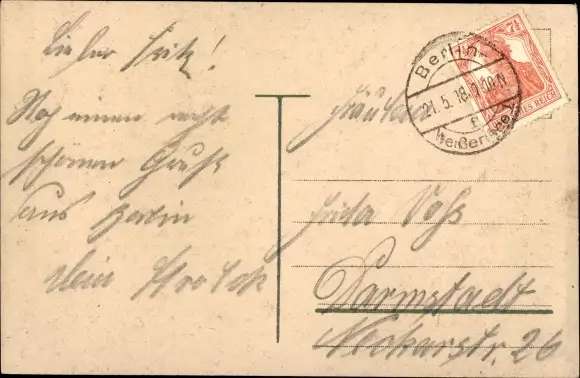 Lieber Fritz!
Noch einen recht
schönen Gruß
aus Berlin
Dein
Berlin-
21.5.18
Weißensee
7½
DEUTSCHES REICH
Fräulein
Frida Voß
Darmstadt
Neckarstr. 26